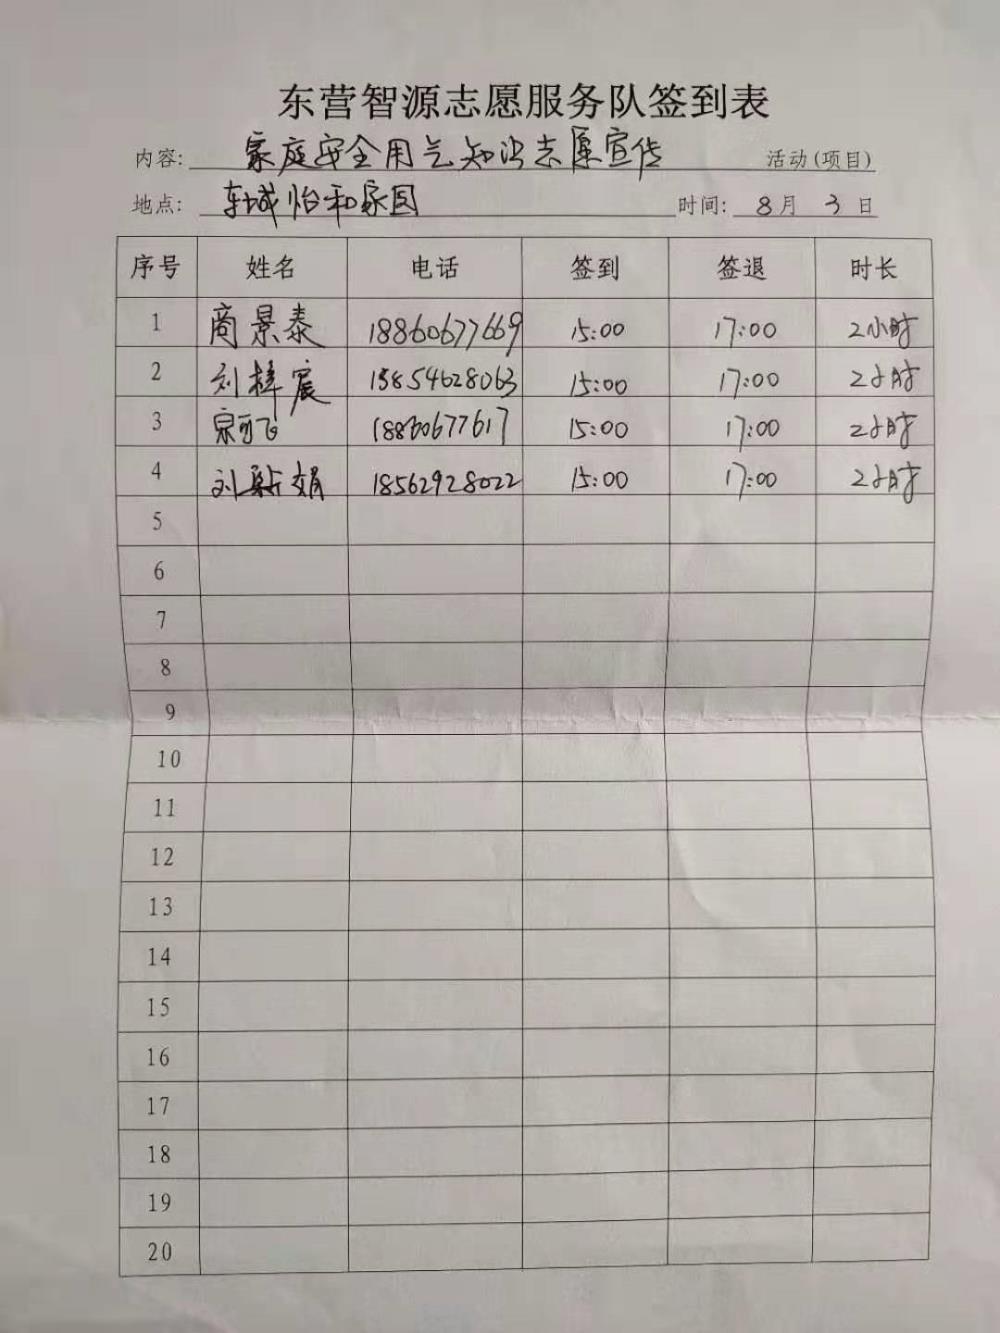 东营智源志愿服务队签到表
内容: 家庭安全用气知识志愿宣传 活动(项目)
地点: 东城怡和家园 时间: 8月 3日
序号 姓名 电话 签到 签退 时长
1 商景泰 18860677669 15:00 17:00 2小时
2 刘梓宸 15854628063 15:00 17:00 2小时
3 宗可飞 18860677617 15:00 17:00 2小时
4 刘 娟 18562928022 15:00 17:00 2小时
5
6
7
8
9
10
11
12
13
14
15
16
17
18
19
20